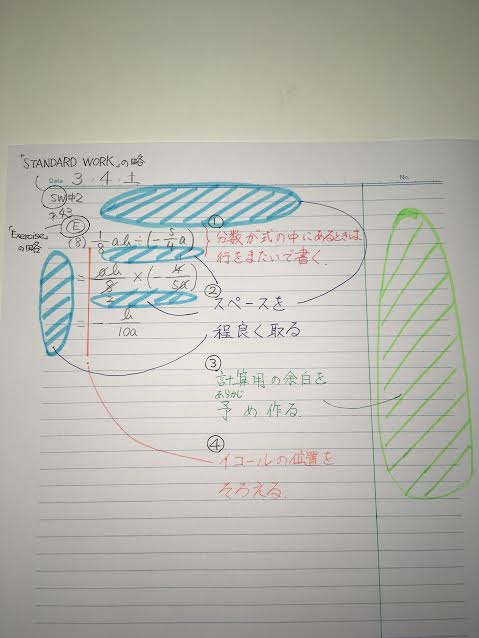 「STANDARD WORK」の略
Date 3・4・土
No.
SW中2
P.43
「Exercise」の略
Ⓔ
(8) 1/8 ab ÷ (-5/4 a)
= ab/8 × (-4/5a)
2
= - b/10a
①
分数が式の中にあるときは
行をまたいで書く.
②
スペースを
程良く取る
③
計算用の余白を
あらかじ
予め作る.
④
イコールの位置を
そろえる.